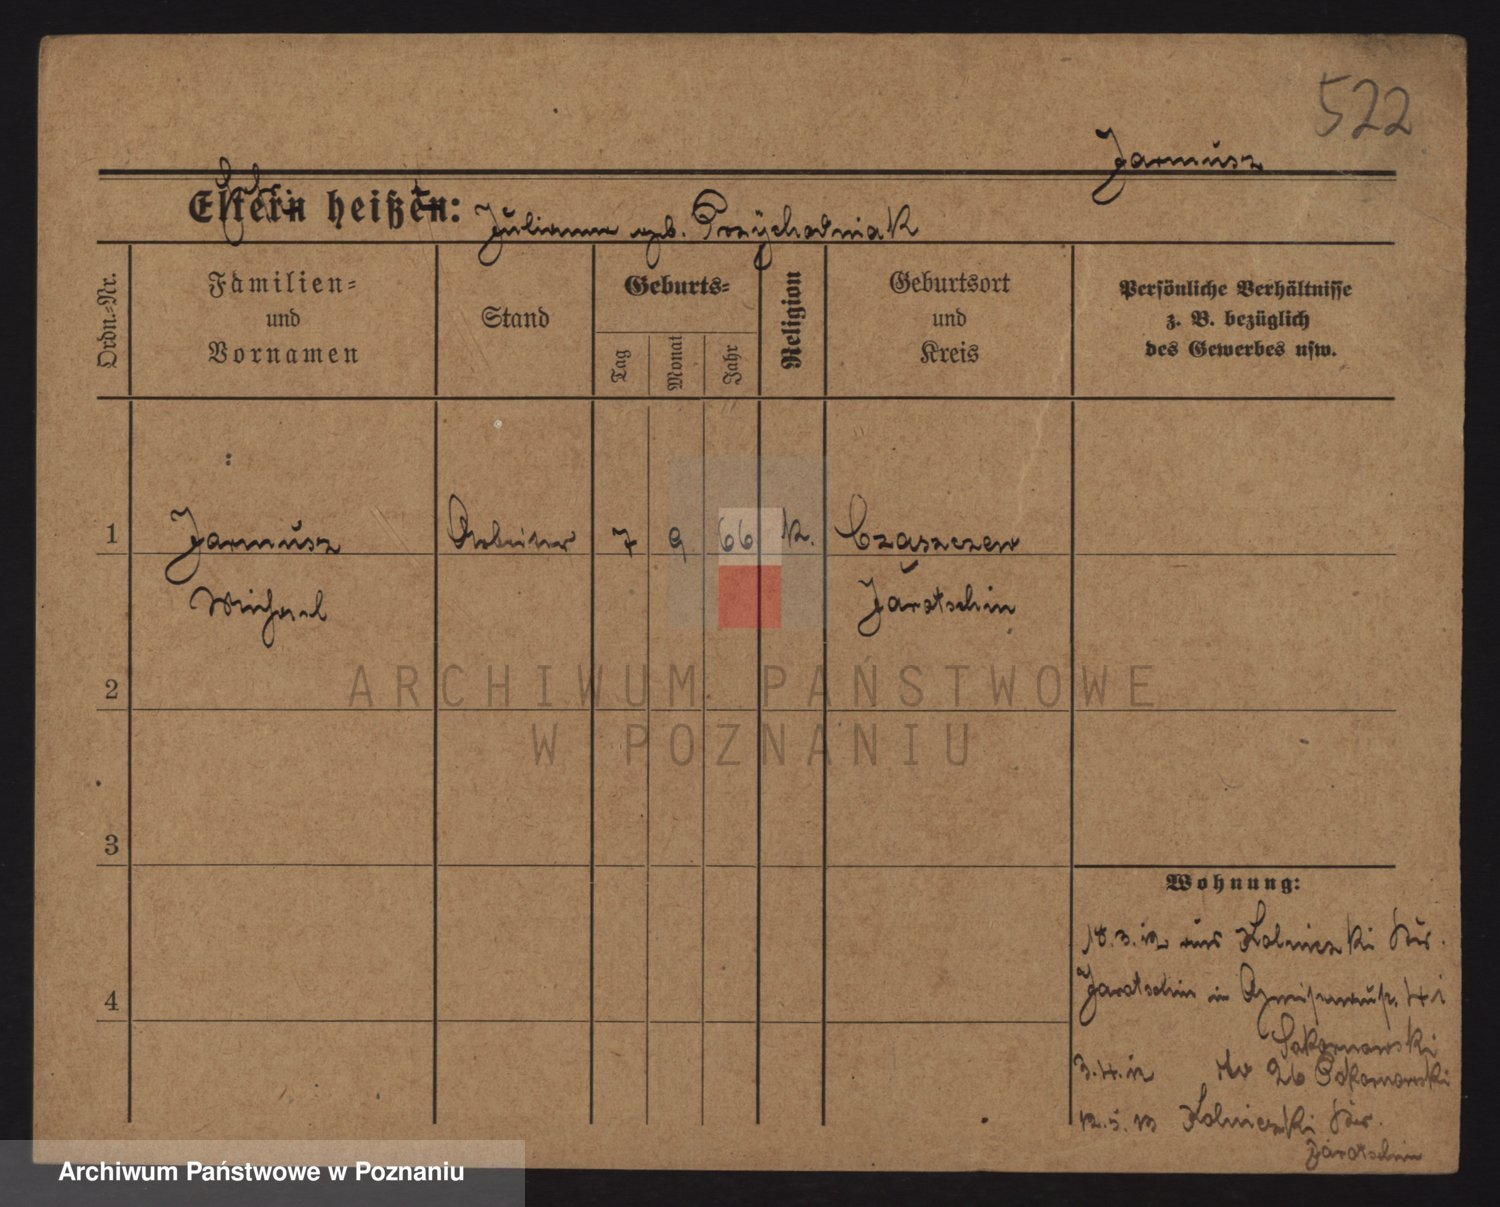 522
Jarmusz
Eltern heißen:
Julianna geb. Przychodniak
Ordn.-Nr.
Familien-
und
Vornamen
Stand
Geburts-
Tag
Monat
Jahr
Religion
Geburtsort
und
Kreis
Persönliche Verhältnisse
z. B. bezüglich
des Gewerbes usw.
1
Jarmusz
Arbeiter
7
9
66
k.
Czaszczew
Michael
Jarotschin
2
ARCHIWUM PAŃSTWOWE
W POZNANIU
3
Wohnung:
18.3.12 aus Kolniczki Kr.
4
Jarotschin in
3.4.12 26
12.5.13 Kolniczki Kr.
Jarotschin
Archiwum Państwowe w Poznaniu